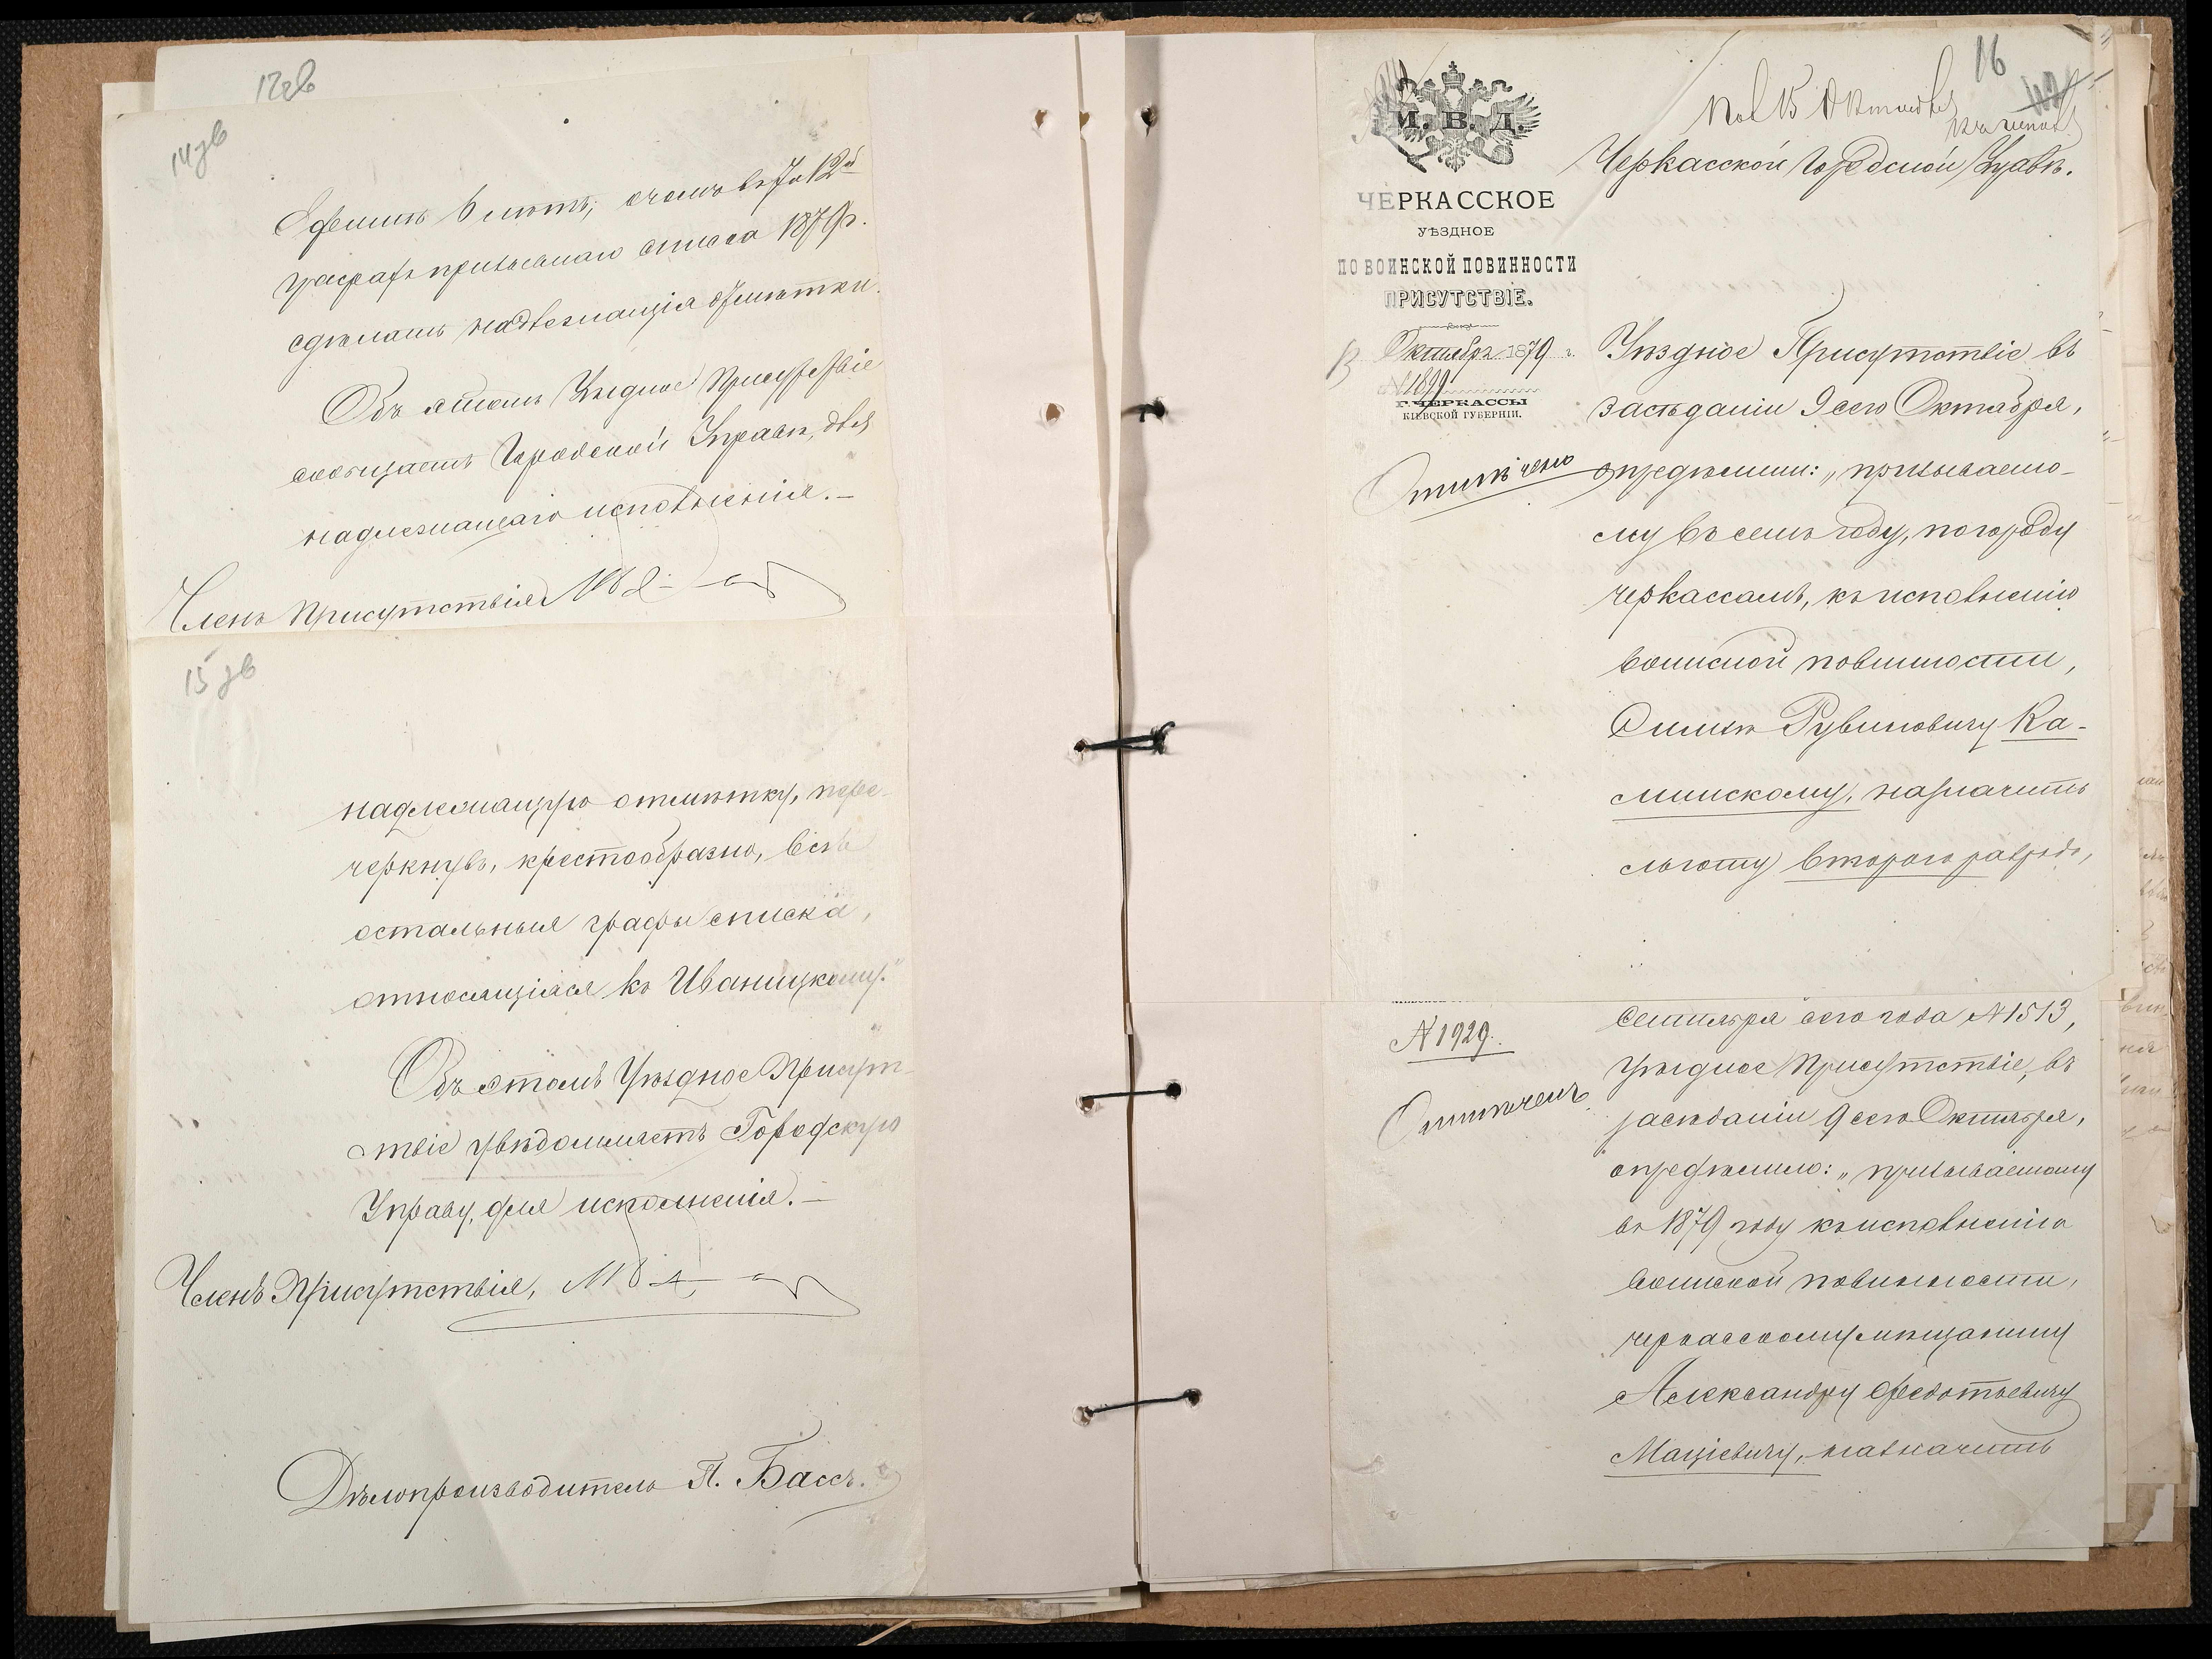 12зв
14зв
лѣтъ, о чемъ въ 7 и 12й
графахъ призывнаго списка 1879 г.
сдѣлать надлежащія отмѣтки.
Объ этомъ Уѣздное Присутствіе
сообщаетъ Городской Управѣ, для
надлежащаго исполненія.—
Членъ Присутствія
15зв
надлежащую отмѣтку, пере-
черкнувъ, крестообразно, всѣ
остальныя графы списка,
относящіяся къ Иваницкому."
Объ этомъ Уѣздное Присут-
ствіе увѣдомляетъ Городскую
Управу, для исполненія.—
Членъ Присутствія,
Дѣлопроизводитель П. Бассъ.
16
Пол 15 Октября
Черкасской Городской Управѣ.
М. В. Д.
ЧЕРКАССКОЕ
УѢЗДНОЕ
ПО ВОИНСКОЙ ПОВИННОСТИ
ПРИСУТСТВІЕ.
13 Октября 1879 г.
№ 1899
Г. ЧЕРКАССЫ
КІЕВСКОЙ ГУБЕРНІИ.
Отмѣчено
Уѣздное Присутствіе въ
засѣданіи 9 сего Октября,
опредѣлили: „призываемо-
му въ семъ году, по городу
Черкассамъ, къ исполненію
воинской повинности,
Рувиновичу Ка-
минскому, назначить
льготу втораго разряда,
№ 1929.
Отмѣчено
Сентября сего года № 1513,
Уѣздное Присутствіе, въ
засѣданіи 9 сего Октября,
опредѣлило: „призываемому
въ 1879 году къ исполненію
воинской повинности,
черкасскому мѣщанину
Александру Федотьевичу
Мацієвичу, назначить